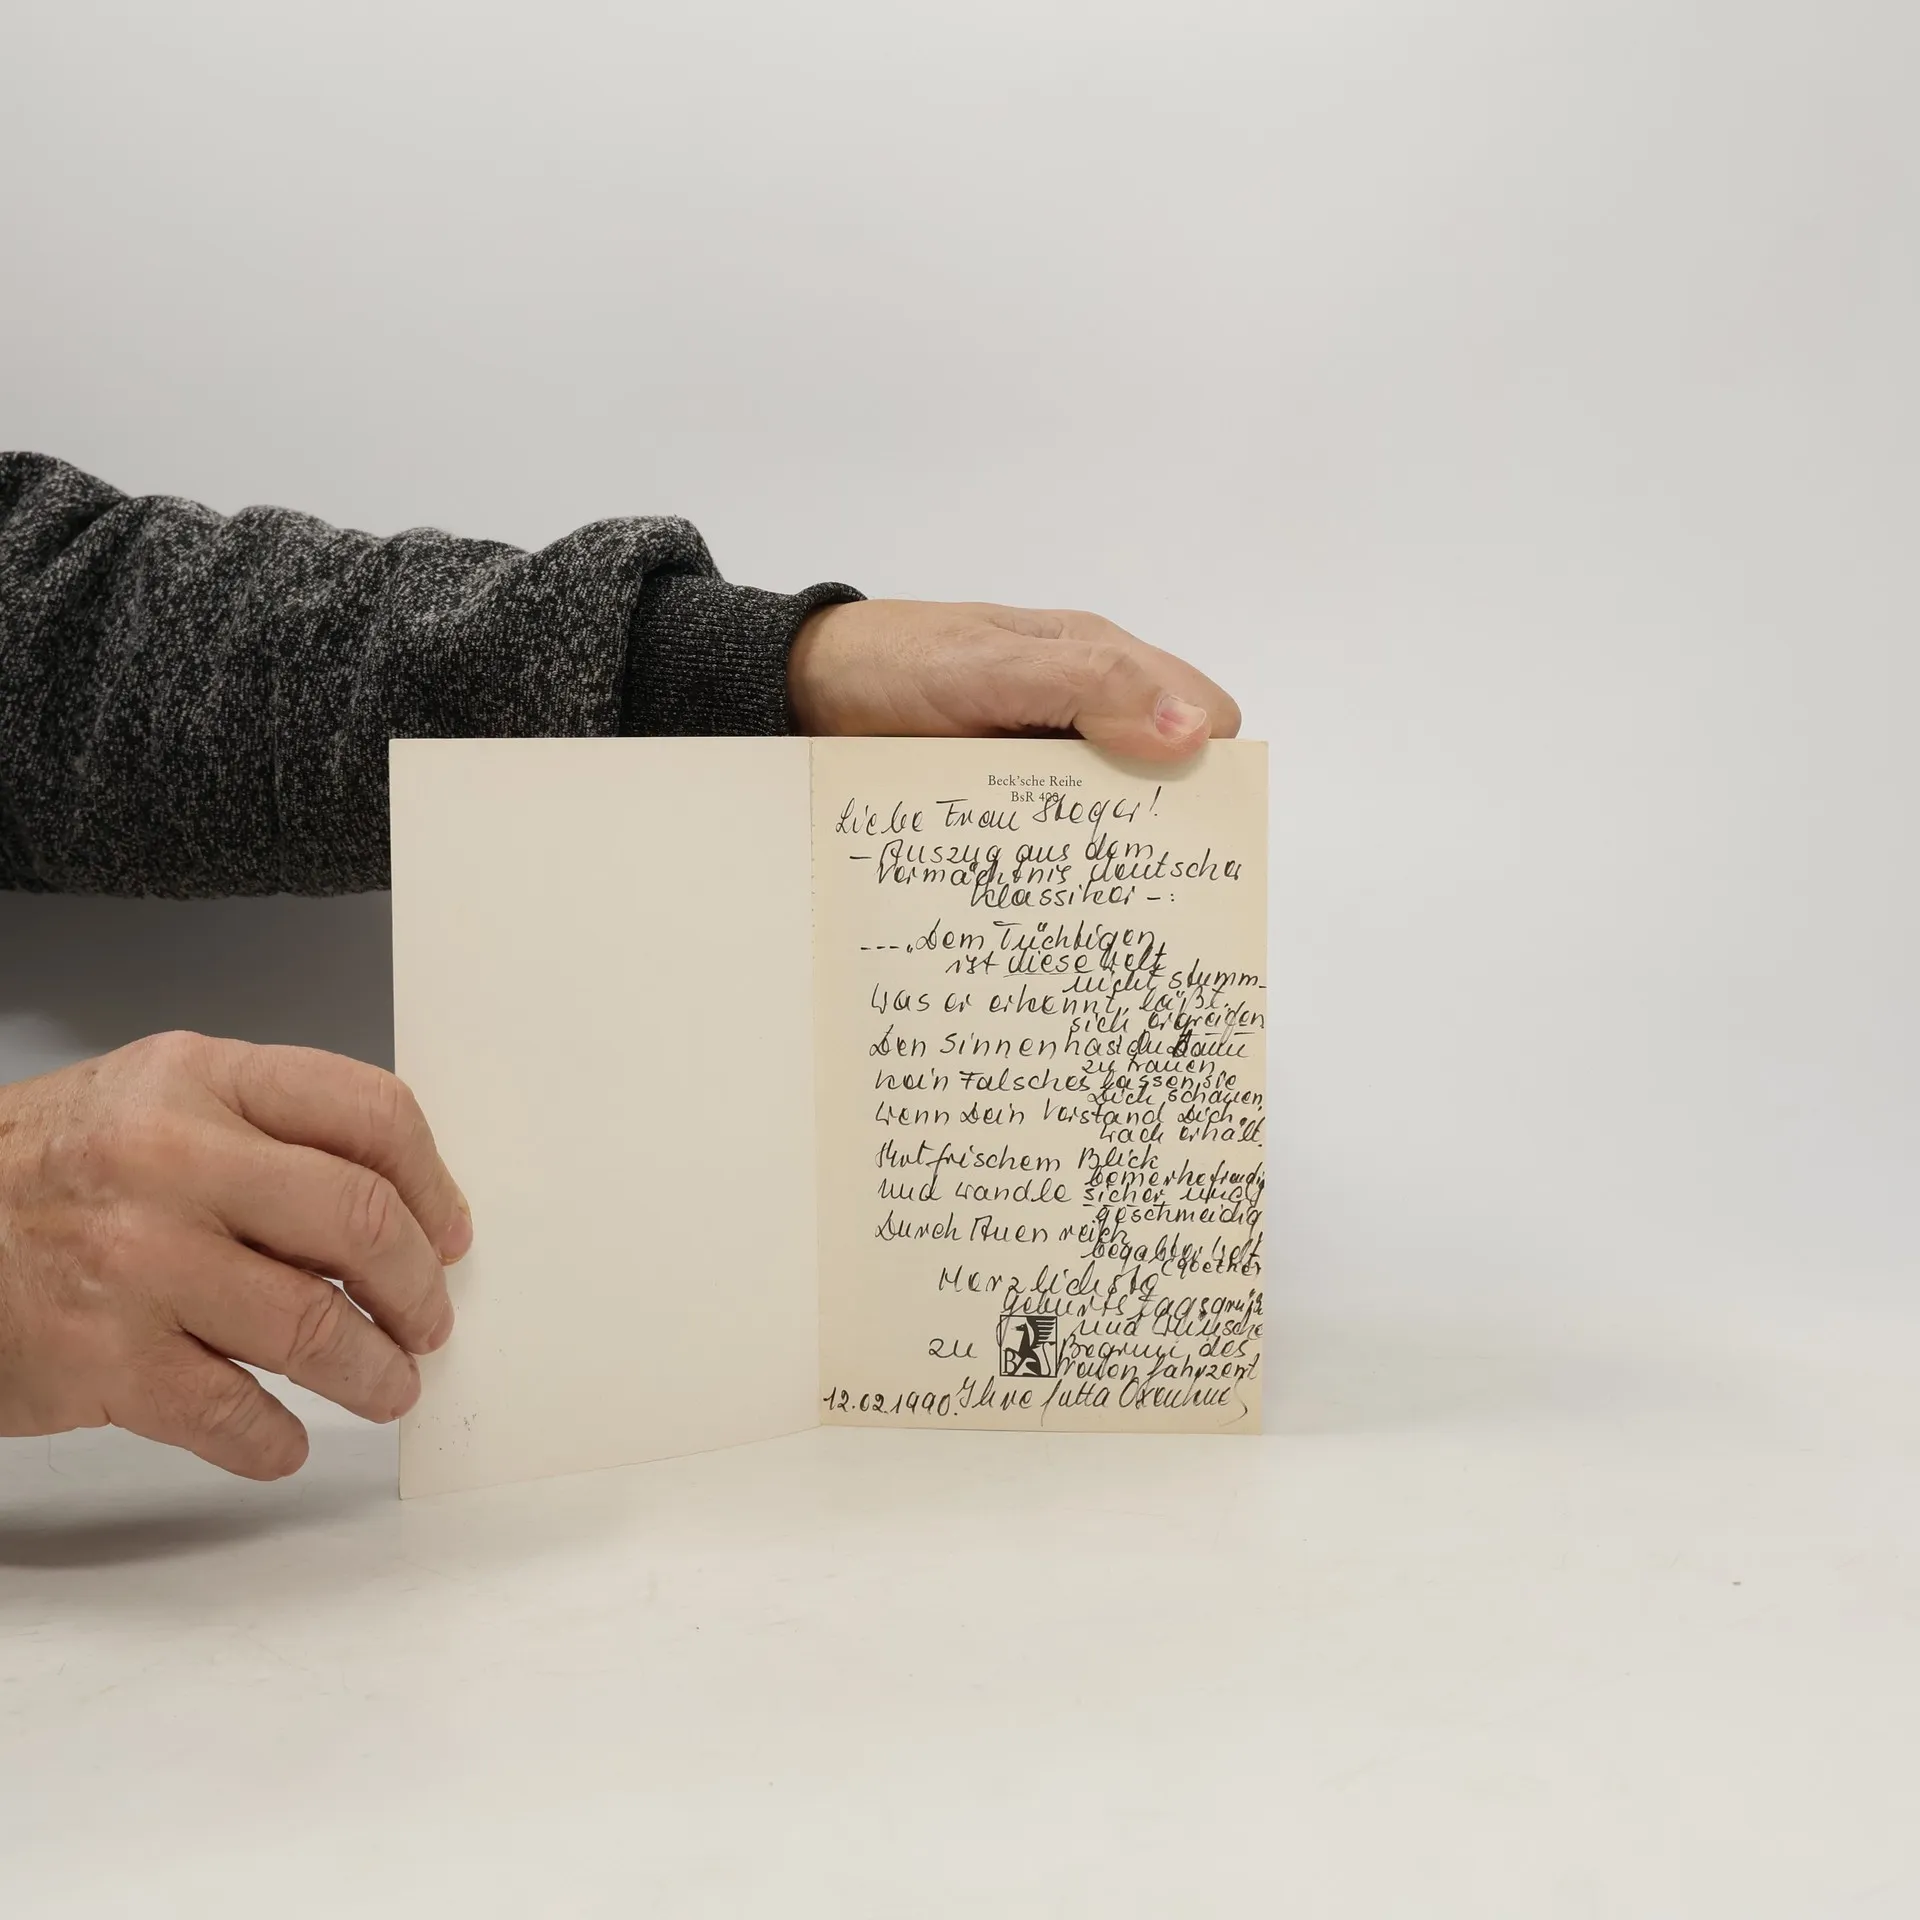 Beck'sche Reihe
BsR 400
Liebe Frau Steger!
– Auszug aus dem
Vermächtnis deutscher
Klassiker –:
---„Dem Tüchtigen
ist diese Welt
nicht stumm–
Was er erkennt, läßt
sich ergreifen
Den Sinnen hast Du dann
zu trauen
kein Falsches lassen sie
Dich schauen,
wenn Dein Verstand Dich
wach erhält.
Mit frischem Blick
bemerke freudig
und wandle sicher und
geschmeidig
Durch Auen reich
begabter Welt
(Goethe)
Herzlichste
Geburtstagsgrüße
und Wünsche
zu Beginn des
neuen Jahrzent
B
12.02.1990. Ihre Jutta